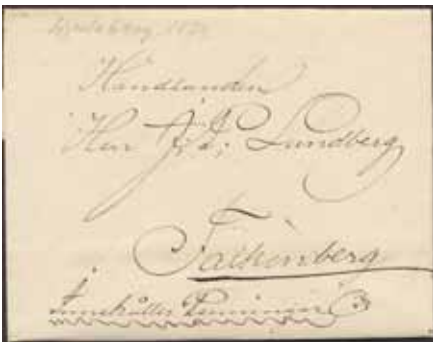 Handlanden
Herr J. P. Lundberg
i
Falkenberg
Innehåller Penningar